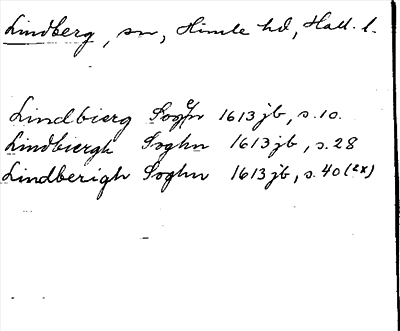 Lindberg, sn, Himle hd, Hall. l.
Lindbierg Sogn 1613 jb, s. 10.
Lindbiergh Soghn 1613 jb, s. 28
Lindberigh Soghn 1613 jb, s. 40 (2x)